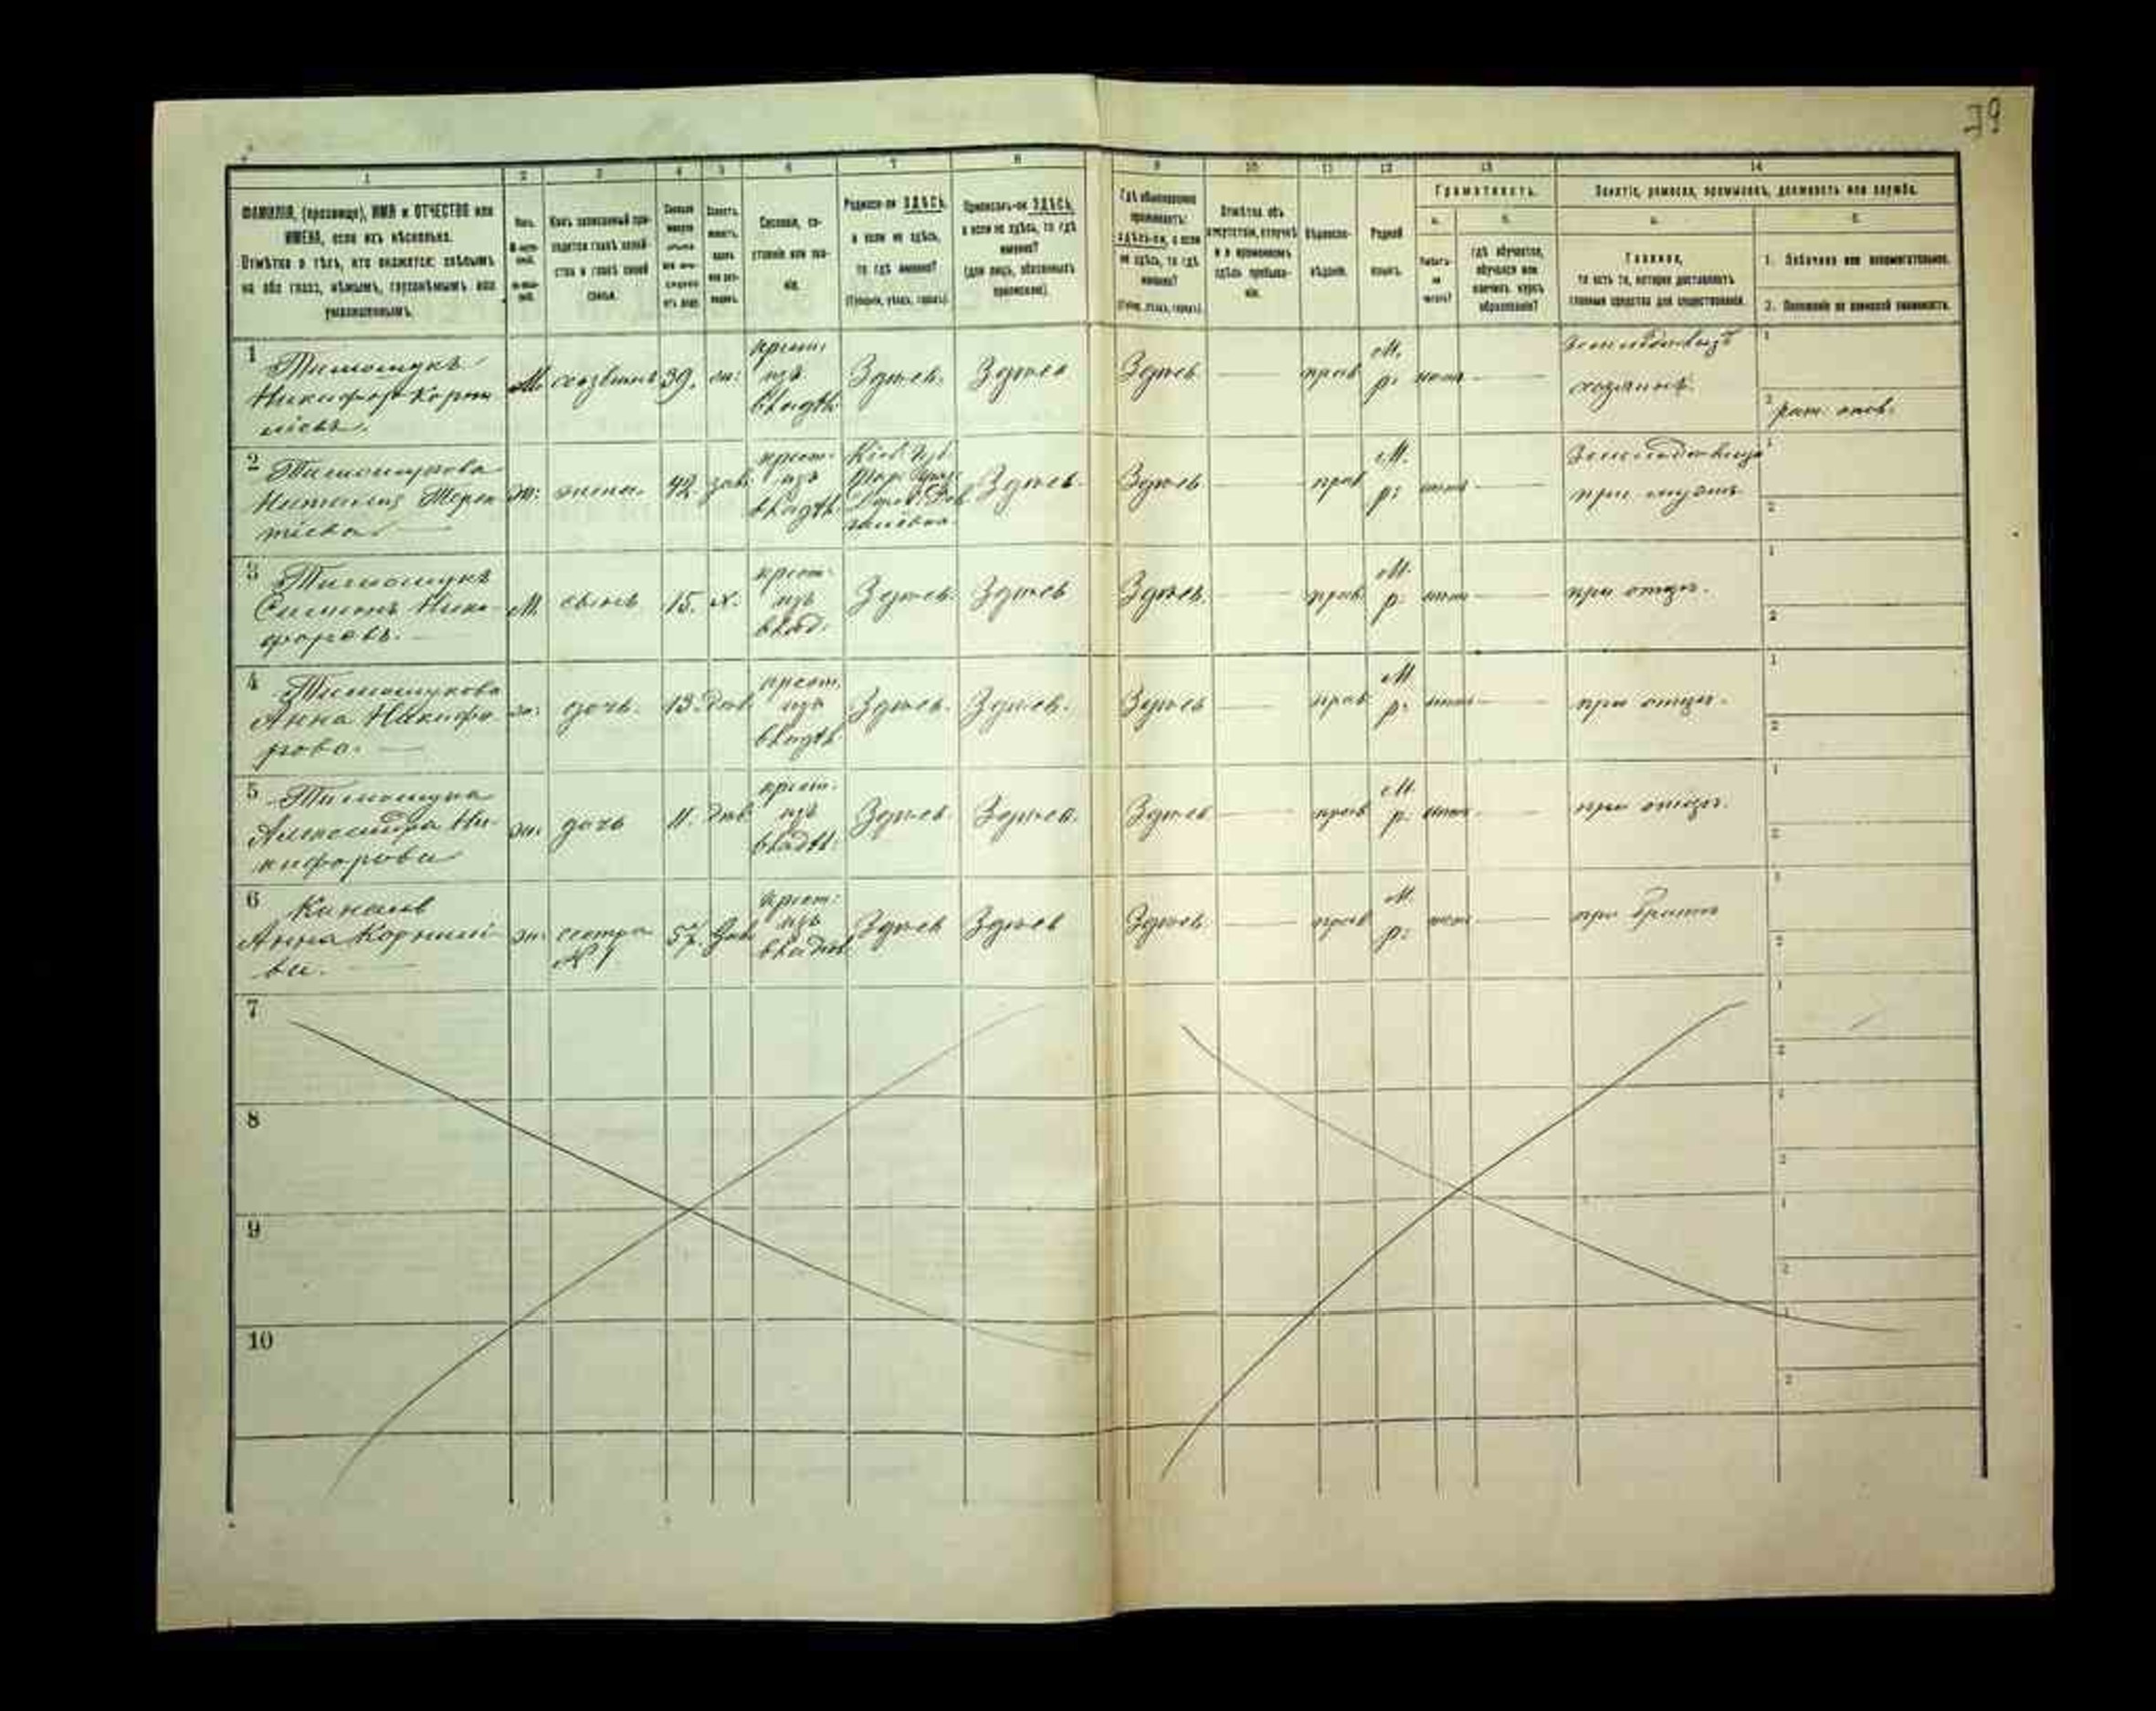 39
1 2 3 4 5 6 7 8 9 10 11 12 13 14
ФАМИЛІЯ, (прозвище), ИМЯ и ОТЧЕСТВО или
ИМЕНА, если ихъ нѣсколько.
Отмѣтка о тѣхъ, кто окажется: слѣпымъ
на оба глаза, нѣмымъ, глухонѣмымъ или
умалишеннымъ.
Полъ.
Какъ записанный при-
ходится главѣ хозяй-
ства и главѣ своей
семьи.
Сословіе, со-
стояніе или зва-
ніе.
Родился-ли ЗДѢСЬ,
а если не здѣсь,
то гдѣ именно?
(Губернія, уѣздъ, городъ).
Приписанъ-ли ЗДѢСЬ,
а если не здѣсь, то гдѣ
именно?
(для лицъ, обязанныхъ
припискою).
Гдѣ обыкновенно
проживаетъ:
здѣсь-ли, а если
не здѣсь, то гдѣ
именно?
(Губер., уѣздъ, городъ).
Отмѣтка объ
отсутствіи, отлучкѣ
и о временномъ
здѣсь пребыва-
ніи.
Вѣроиспо-
вѣданіе.
Родной
языкъ.
Грамотность.
а. б.
гдѣ обучается,
обучался или
кончилъ курсъ
образованія?
Занятіе, ремесло, промыселъ, должность или служба.
а. б.
Главное,
то есть то, которое доставляетъ
главныя средства для существованія.
1. Побочное или вспомогательное.
2. Положеніе по воинской повинности.
1 Тимощукъ
Никифоръ Корни
ліевъ.
М хозяинъ 39. ж:
крест.
изъ
владѣл.
Здѣсь. Здѣсь Здѣсь — прав
М.
р.
нѣтъ —
Земледѣлецъ
хозяинъ.
1
2 рат. опол.
2 Тимощукова
Наталія Терен
тіева
ж: жена. 42 зам.
крест.
изъ
владѣл.
Кіев. губ.
Здѣсь. Здѣсь — прав
М.
р:
нѣтъ —
Земледѣлица
при мужѣ
1
2
3 Тимощукъ
Симеонъ Ники-
форовъ.
М. сынъ 15. х.
крест.
изъ
влад.
Здѣсь. Здѣсь Здѣсь. — прав.
М.
р.
нѣтъ —
при отцѣ.
1
2
4 Тимощукова
Анна Никифо
рова.
ж: дочь. 13. дѣв.
крест.
изъ
владѣл.
Здѣсь. Здѣсь. Здѣсь — прав.
М
р.
нѣтъ —
при отцѣ.
1
2
5 Тимощукова
Александра Ни-
кифорова
ж. дочь 11. дѣв.
крест.
изъ
владѣл.
Здѣсь. Здѣсь. Здѣсь — прав
М.
р.
нѣтъ —
при отцѣ.
1
2
6
Анна Корнилі-
ва.
ж. сестра
№ 1
57.
крест:
изъ
владѣл.
Здѣсь Здѣсь Здѣсь. — прав
М
р:
нѣтъ —
при братѣ
1
2
7
1
2
8
1
2
9
1
2
10
1
2